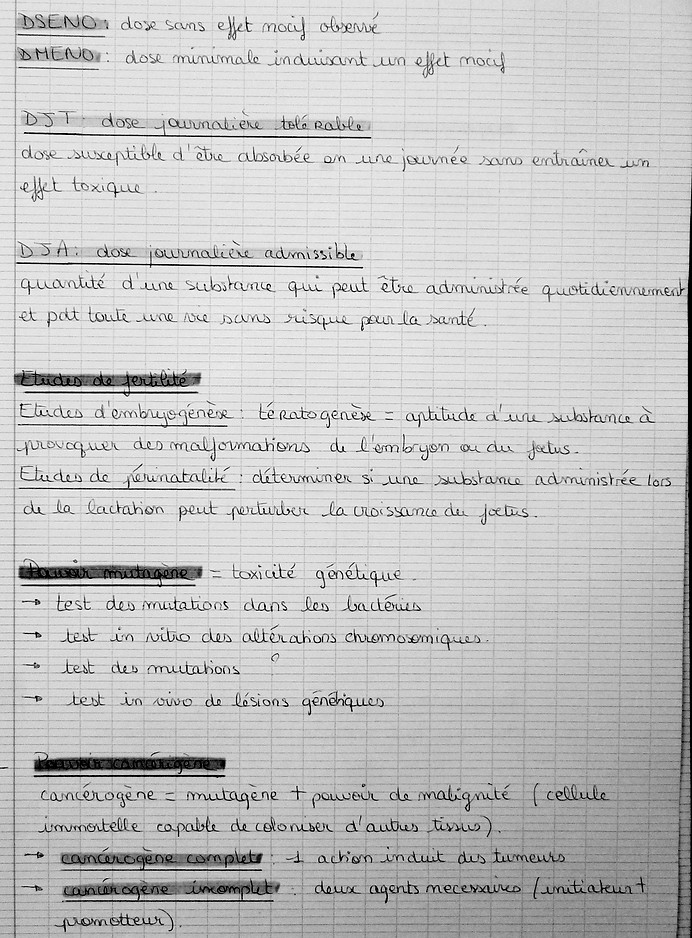 DSENO : dose sans effet nocif observé
DMENO : dose minimale induisant un effet nocif
DJT : dose journalière tolérable
dose susceptible d'être absorbée en une journée sans entraîner un
effet toxique.
DJA : dose journalière admissible
quantité d'une substance qui peut être administrée quotidiennement
et pdt toute une vie sans risque pour la santé.
Etudes de fertilité
Etudes d'embryogénèse : tératogenèse = aptitude d'une substance à
provoquer des malformations de l'embryon ou du foetus.
Etudes de périnatalité : déterminer si une substance administrée lors
de la lactation peut perturber la croissance du foetus.
Pouvoir mutagène = toxicité génétique.
→ test des mutations dans les bactéries
→ test in vitro des altérations chromosomiques.
→ test des mutations ?
→ test in vivo de lésions génétiques
Pouvoir cancérigène
cancérogène = mutagène + pouvoir de malignité (cellule
immortelle capable de coloniser d'autres tissus).
→ cancérogène complet : 1 action induit des tumeurs
→ cancérogène incomplet : deux agents necessaires (initiateur +
promotteur).